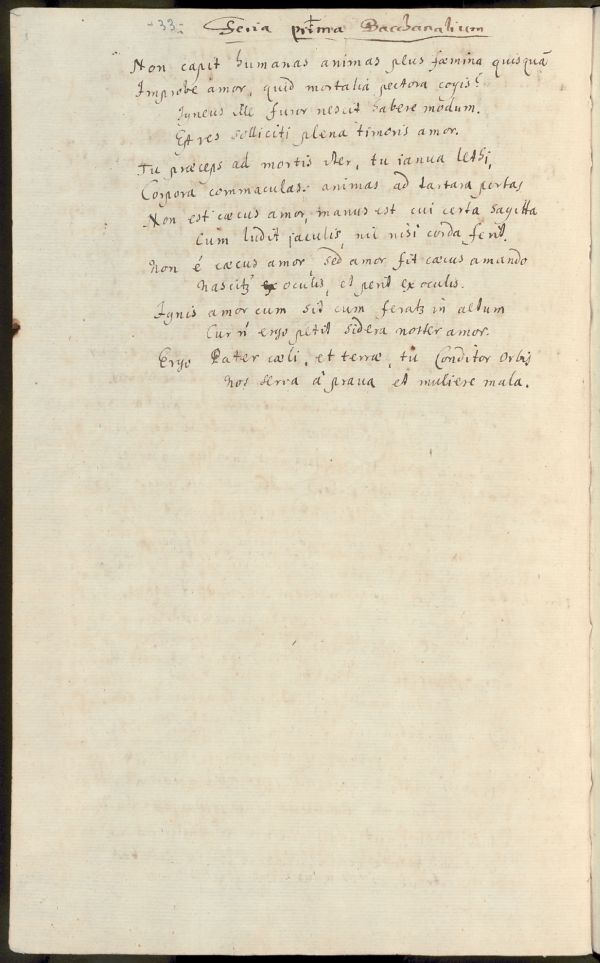 -33- Feria prima Bacchanalium
Non capit humanas animas plus fæmina quisquā
Improbe amor, quid mortalia pectora cogis?
Igneus ille furor nescit habere modum.
Est res solliciti plena timoris amor.
Tu præceps ad mortis iter, tu ianua lethi,
Corpora commaculas, animas ad tartara portas
Non est cæcus amor, manus est cui certa sagitta
Cum ludit jaculis, nil nisi corda ferit.
Non é cæcus amor, sed amor fit cæcus amando
Nascitʒ ex oculis, et perit ex oculis.
Ignis amor cum sit cum feratʒ in altum
Cur ñ ergo petit sidera noster amor.
Ergo Pater cæli, et terræ, tu Conditor Orbis
Nos serva á praua et muliere mala.